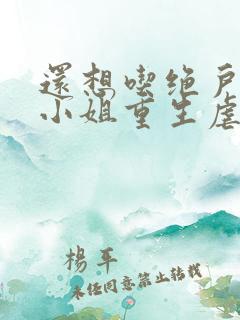 還想喫绝戶
小姐重生虐
楊平
未经同意禁止转载